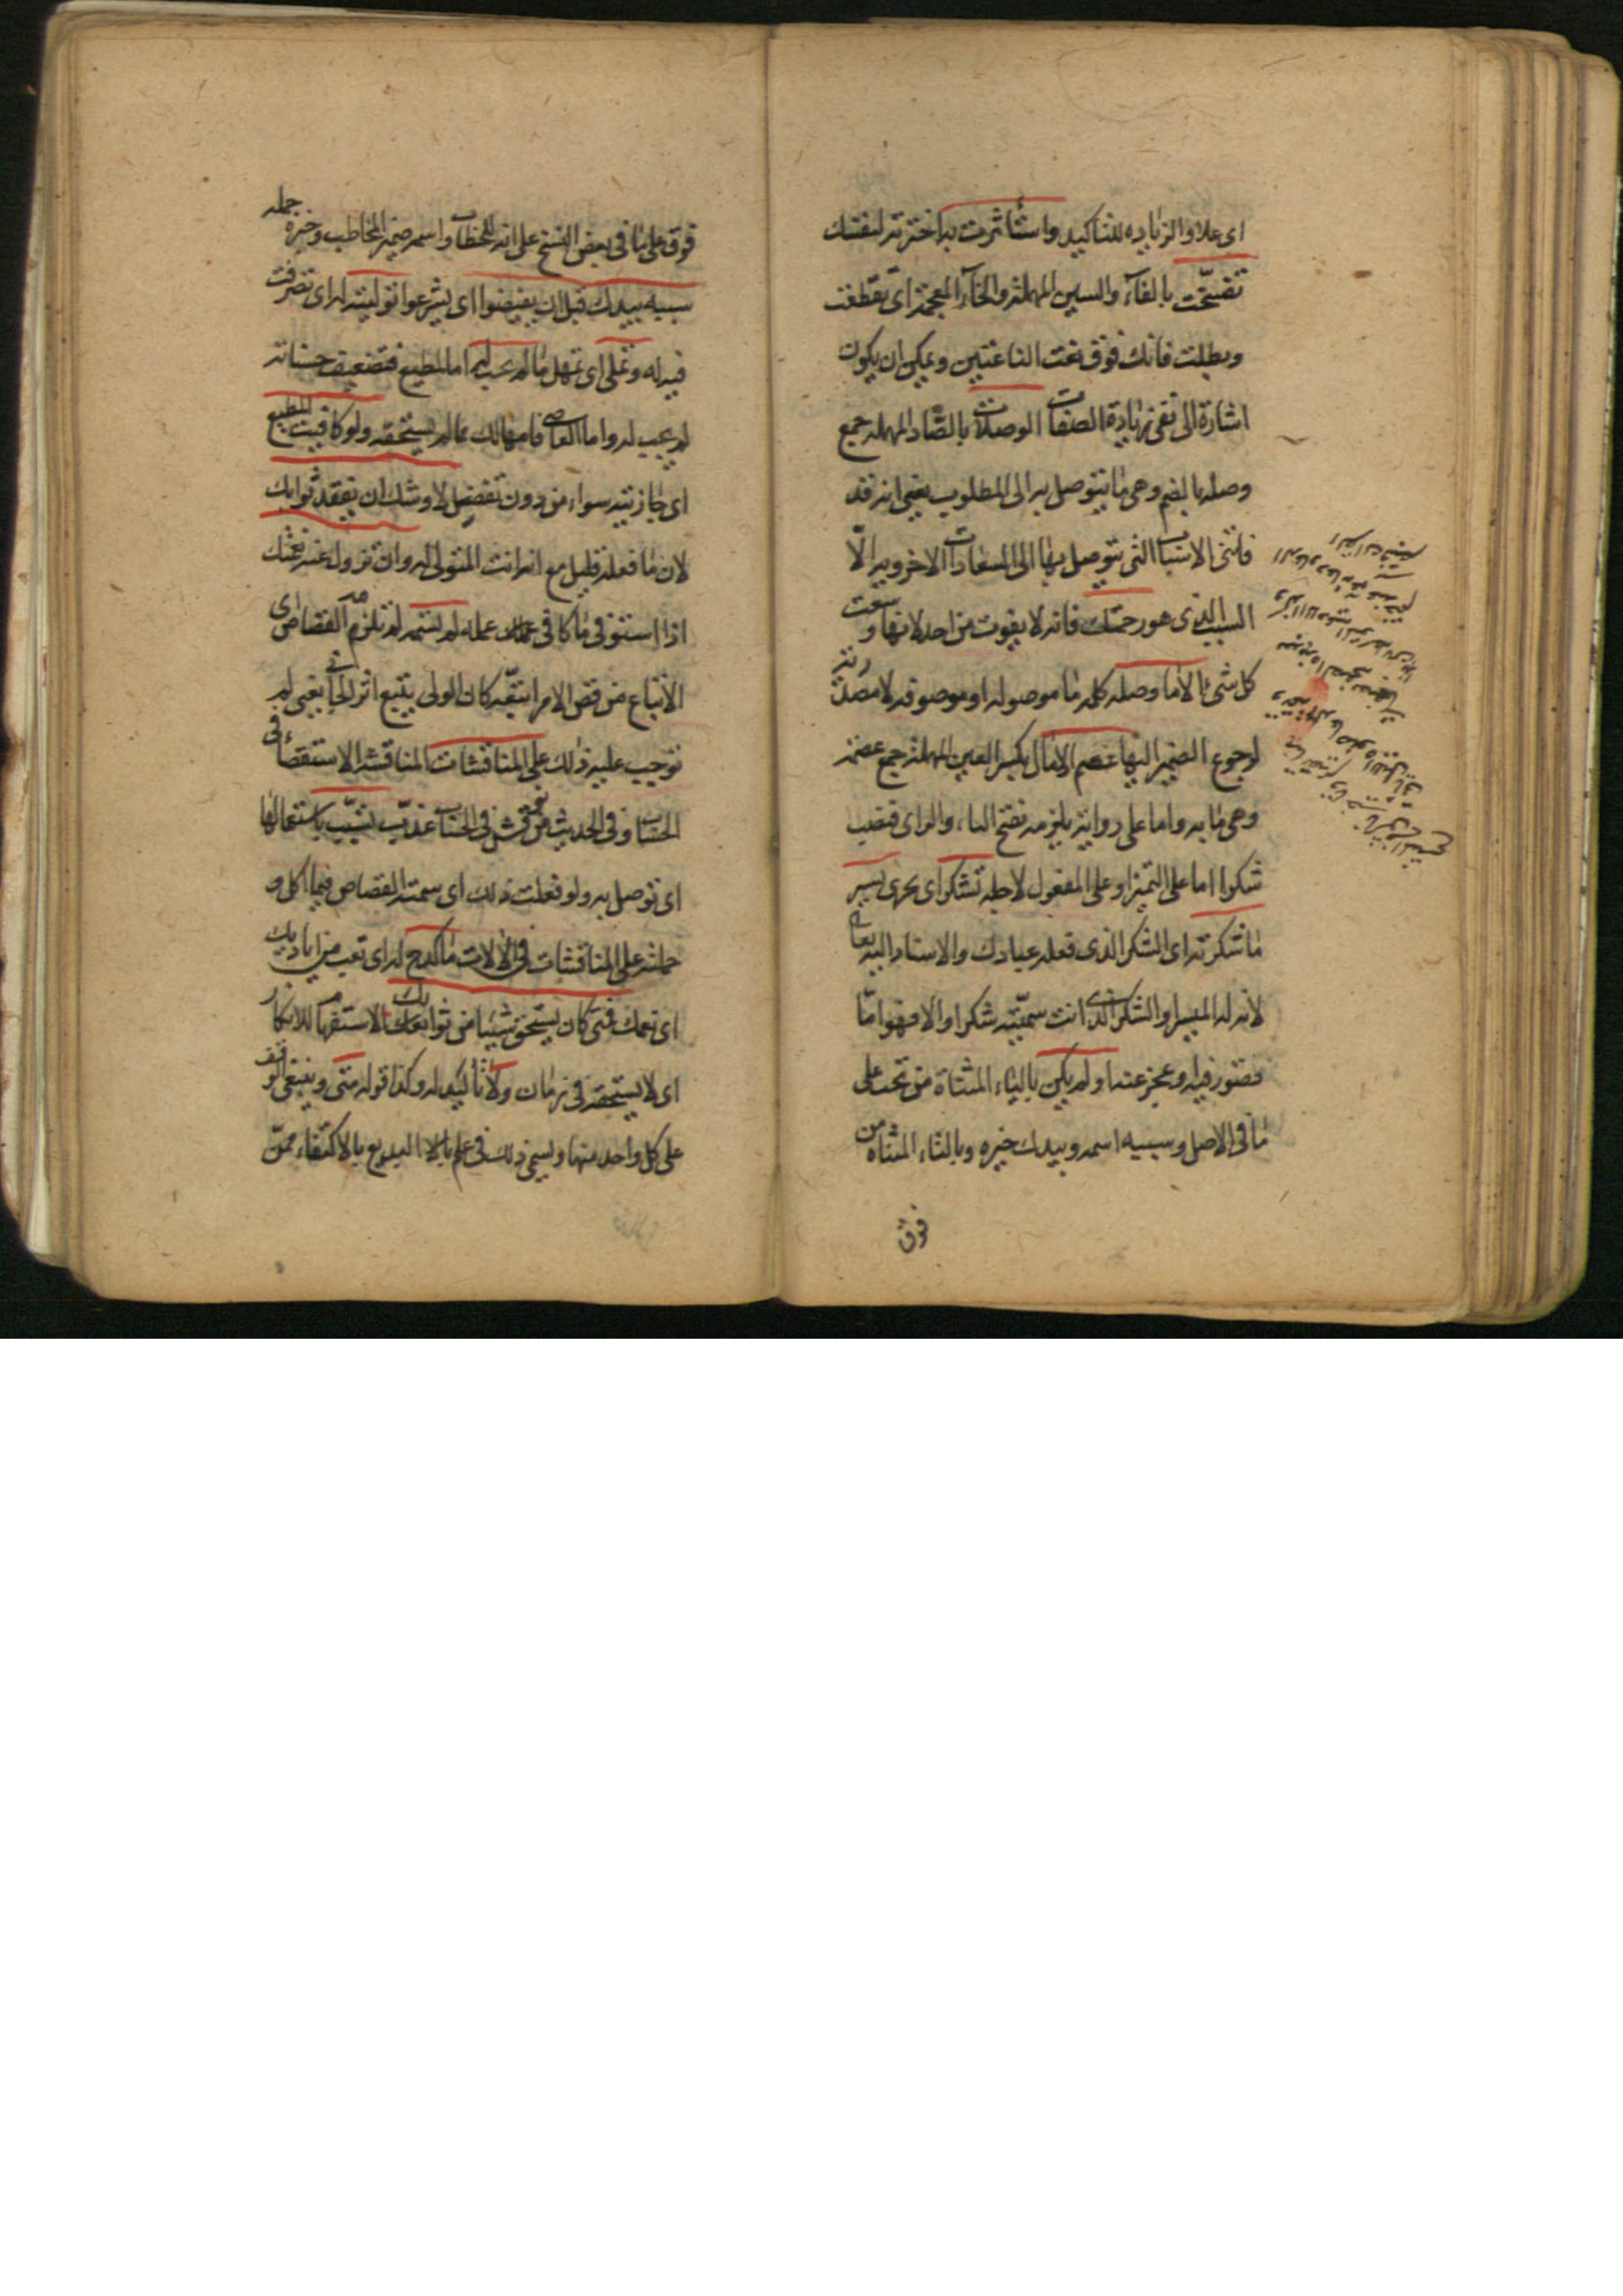 اى علا والزياده للتاكيد واستأثرت به اخترته لنفسك
تفسّخت بالفاء والسين المهملة والخاء المعجمة اى تقطعت
وبطلت فانك فوق نعت الناعتين ويمكن ان يكون
اشارة الى نفى زيادة الصفات الوصلات بالصّاد المهمله جمع
وصله بالضم وهى ما يتوصل به الى المطلوب يعنى انه قد
فاتنى الاسباب التى يتوصل بها الى السعادات الاخرويه الّا
السبب الذى هو رحمتك فانه لا يفوت من احد لانها وسعت
كل شئ الا ما وصله كلمه ما موصوله او موصوفه لا مصدرية
لرجوع الضمير اليها عصم الآمال بكسر العين المهملة جمع عصمة
وهى ما به واما على رواية يلزمه بفتح الياء والزاى فنصب
شكرا اما على التميز او على المفعول لاجله تشكر اى تجزى يسير
ما شكرته اى الشكر الذى فعله عبادك والاسناد اليه تعالى
لانه له الميسر او الشكر الذى انت سميّته شكرا والا فهو امّا
قصور فيه وعجز عنه او لم يكن بالياء المثناة من تحت على
ما فى الاصل وسببه اسمه وبيدك خبره وبالتاء المثناه من
فوق
فوق على ما فى بعض النسخ على انه للخطاب واسمه ضمير المخاطب وخبره جمله
سببه بيدك قبل ان يفيضوا اى يشرعوا توليته له اى تصرفت
فيه له وتملى اى تمهل ما لم يجب له اما المطيع فتضعيف حسناته
لم يجب له واما العاصى فامهالك مما لم يستحقه ولو كافيت المطيع
اى جازيته سواء من دون تفضل لاوشك ان يفقد ثوابك
لان ما فعله قليل مع انه انت المتولى له وان تزول عنه نعمتك
اذا استوفى ما كافى عمله لم تسمه لم تلزمه القصاص اى
الاتباع من قص الامر اتبعه كان الولى يتبع اثر الجانى يعنى لم
توجب عليه ذلك على المناقشات المناقشه الاستقصاء فى
الحساب وفى الحديث من نوقش فى الحساب عذّب تسّبب باستعمالها
اى توصل به ولو فعلت ذلك اى سمته القصاص فيما اكل و
حملته على المناقشات فى الآلات ما كدح له اى تعب من اياديك
اى نعمك فمتى كان يستحق شيئا من ثوابك الاستفهام للانكار
اى لا يستحقه فى زمان ولا تاكيد له وكذا قوله متى وينبغى الوقف
على كل واحد منها ويسمى ذلك فى علم البديع بالاكتفاء ممّن